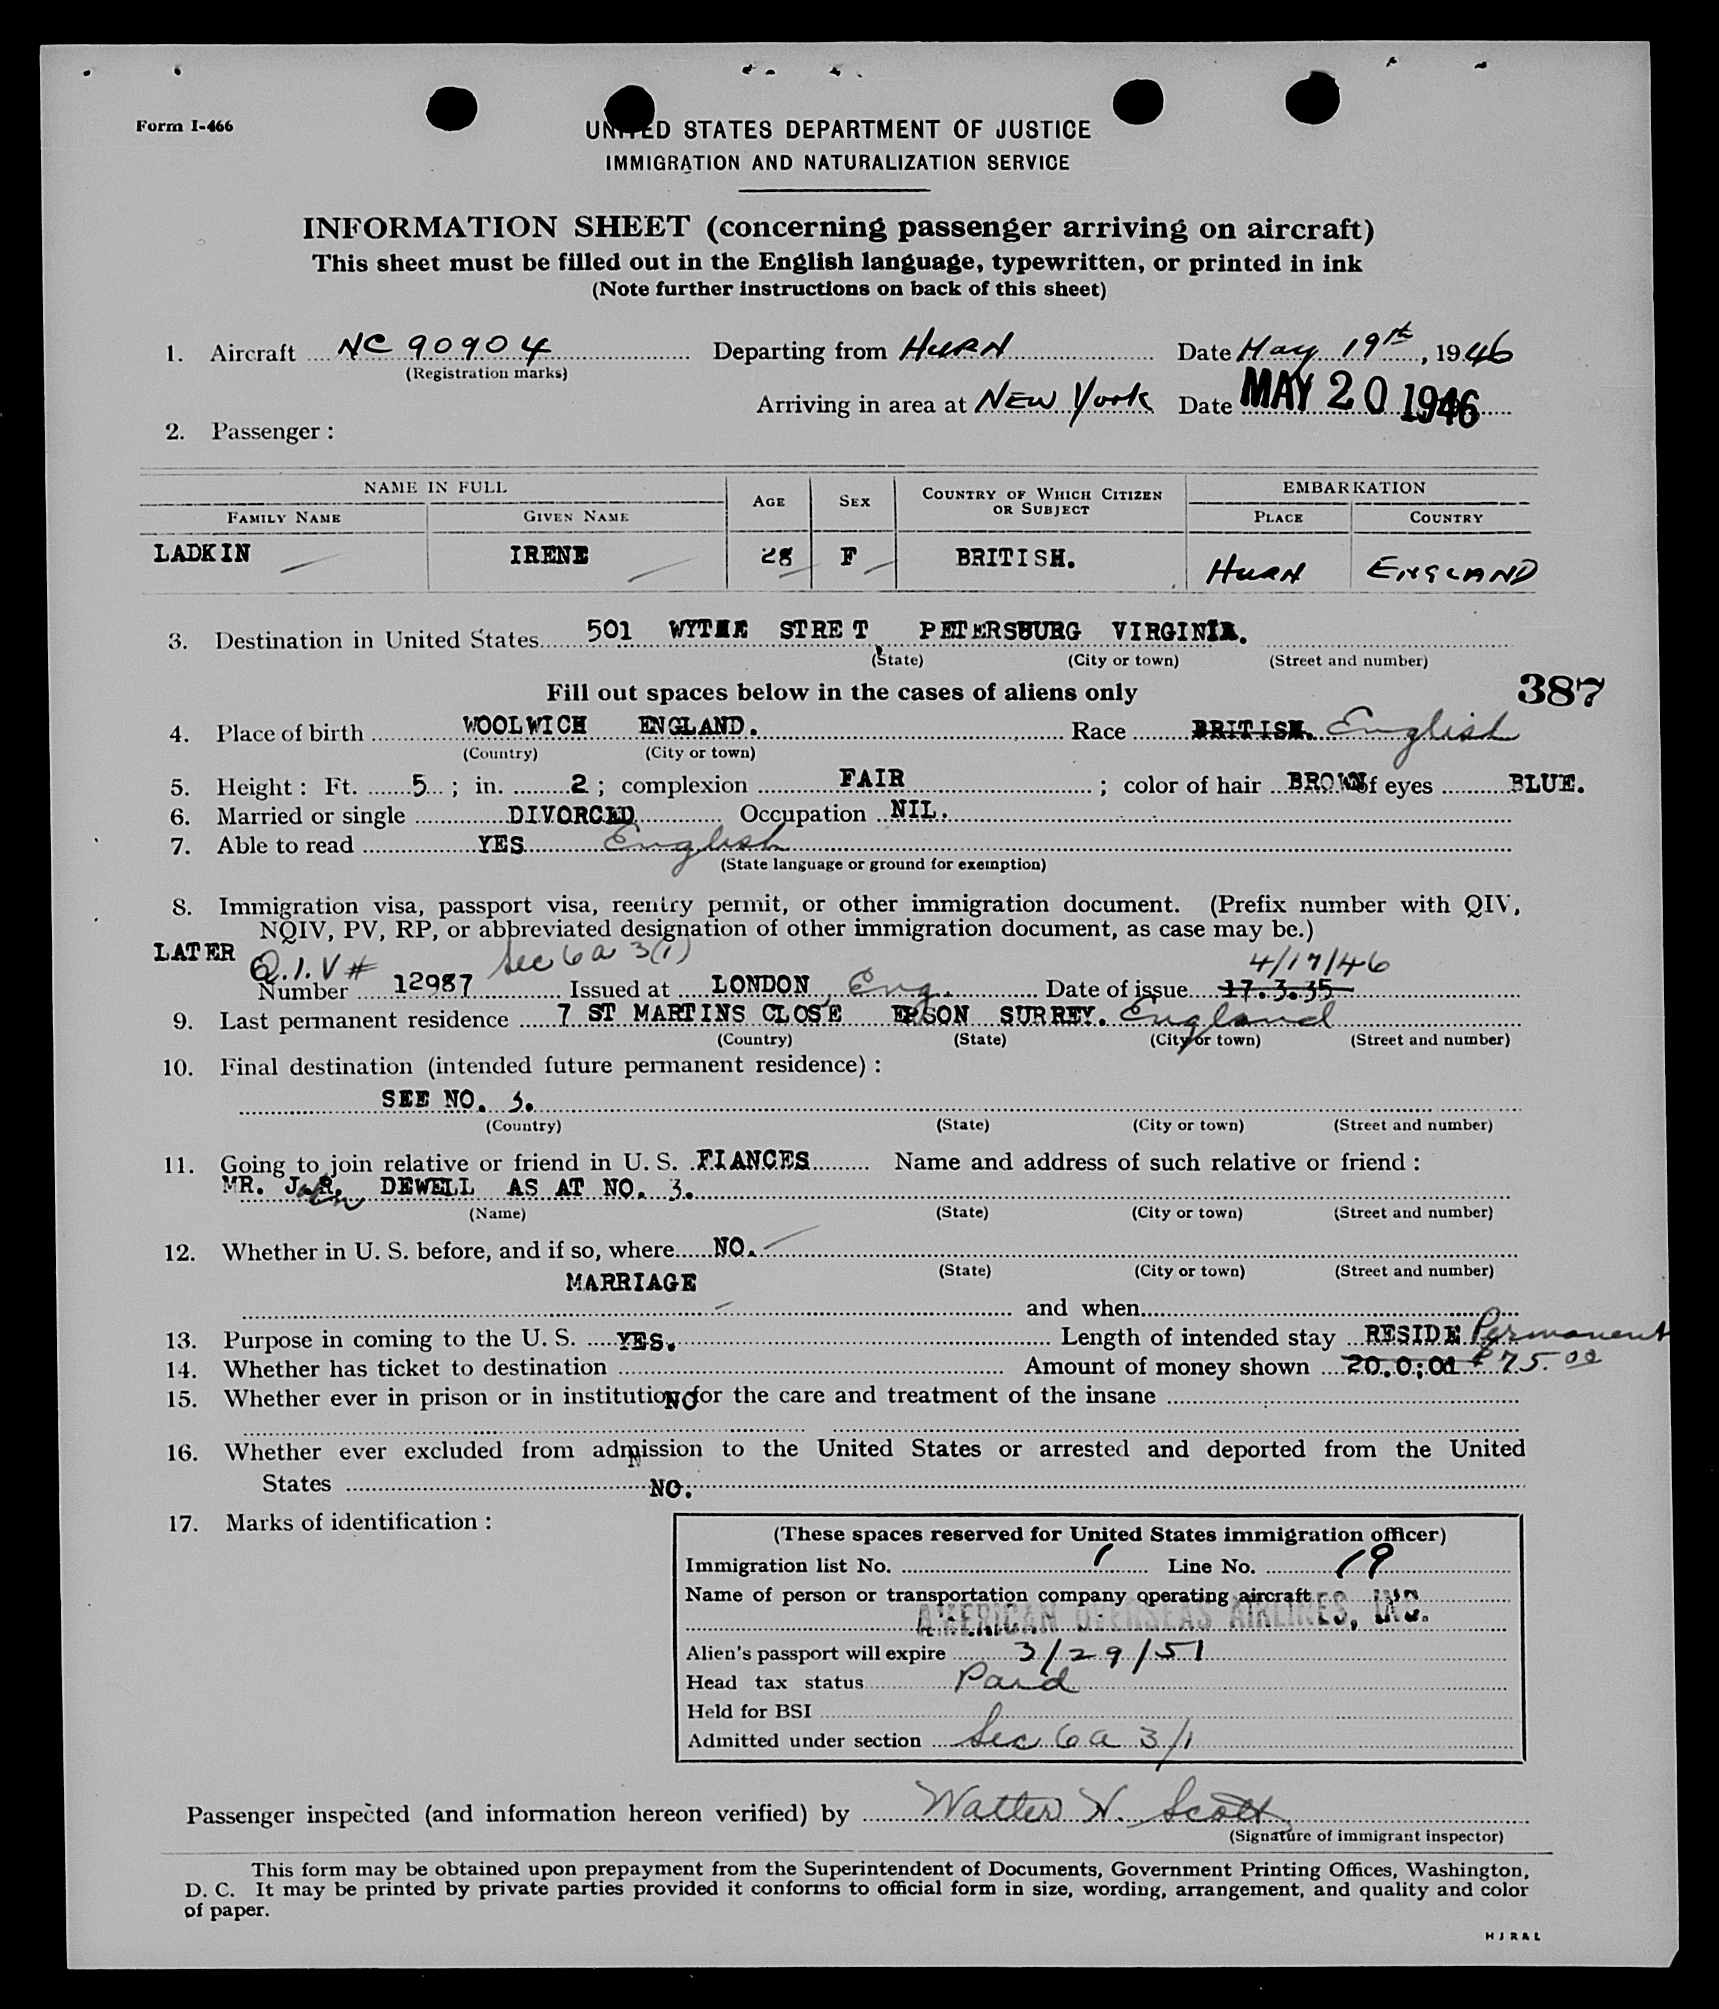 Form I-466
UNITED STATES DEPARTMENT OF JUSTICE
IMMIGRATION AND NATURALIZATION SERVICE
INFORMATION SHEET (concerning passenger arriving on aircraft)
This sheet must be filled out in the English language, typewritten, or printed in ink
(Note further instructions on back of this sheet)
1. Aircraft NC 90904 Departing from HURN Date May 19th, 1946
(Registration marks)
Arriving in area at NEW York Date MAY 20 1946
2. Passenger :
NAME IN FULL AGE SEX COUNTRY OF WHICH CITIZEN OR SUBJECT EMBARKATION
FAMILY NAME GIVEN NAME PLACE COUNTRY
LADKIN IRENE 28 F BRITISH. HURN ENGLAND
3. Destination in United States 501 WYTHE STRE T PETERSBURG VIRGINIA.
(State) (City or town) (Street and number)
Fill out spaces below in the cases of aliens only 387
4. Place of birth WOOLWICH ENGLAND. Race BRITISH. English
(Country) (City or town)
5. Height : Ft. 5 ; in. 2 ; complexion FAIR ; color of hair BROWN of eyes BLUE.
6. Married or single DIVORCED Occupation NIL.
7. Able to read YES English
(State language or ground for exemption)
8. Immigration visa, passport visa, reentry permit, or other immigration document. (Prefix number with QIV,
NQIV, PV, RP, or abbreviated designation of other immigration document, as case may be.)
LATER Q.I.V # Sec 6 a 3(1) 4/17/46
Number 12987 Issued at LONDON, Eng. Date of issue 17.3.35
9. Last permanent residence 7 ST MARTINS CLOSE EPSON SURREY. England
(Country) (State) (City or town) (Street and number)
10. Final destination (intended future permanent residence) :
SEE NO. 3.
(Country) (State) (City or town) (Street and number)
11. Going to join relative or friend in U. S. FIANCES Name and address of such relative or friend :
MR. J. R. DEWELL AS AT NO. 3.
(Name) (State) (City or town) (Street and number)
12. Whether in U. S. before, and if so, where NO.
(State) (City or town) (Street and number)
MARRIAGE
and when
13. Purpose in coming to the U. S. YES. Length of intended stay RESIDE Permanent
14. Whether has ticket to destination Amount of money shown 20.0.0d $75.00
15. Whether ever in prison or in institution NO for the care and treatment of the insane
16. Whether ever excluded from admission to the United States or arrested and deported from the United
States NO.
17. Marks of identification :
(These spaces reserved for United States immigration officer)
Immigration list No. 1 Line No. 19
Name of person or transportation company operating aircraft
AMERICAN OVERSEAS AIRLINES, INC.
Alien's passport will expire 3/29/51
Head tax status Paid
Held for BSI
Admitted under section Sec 6 a 3/1
Passenger inspected (and information hereon verified) by Walter N. Scott
(Signature of immigrant inspector)
This form may be obtained upon prepayment from the Superintendent of Documents, Government Printing Offices, Washington,
D. C. It may be printed by private parties provided it conforms to official form in size, wording, arrangement, and quality and color
of paper.